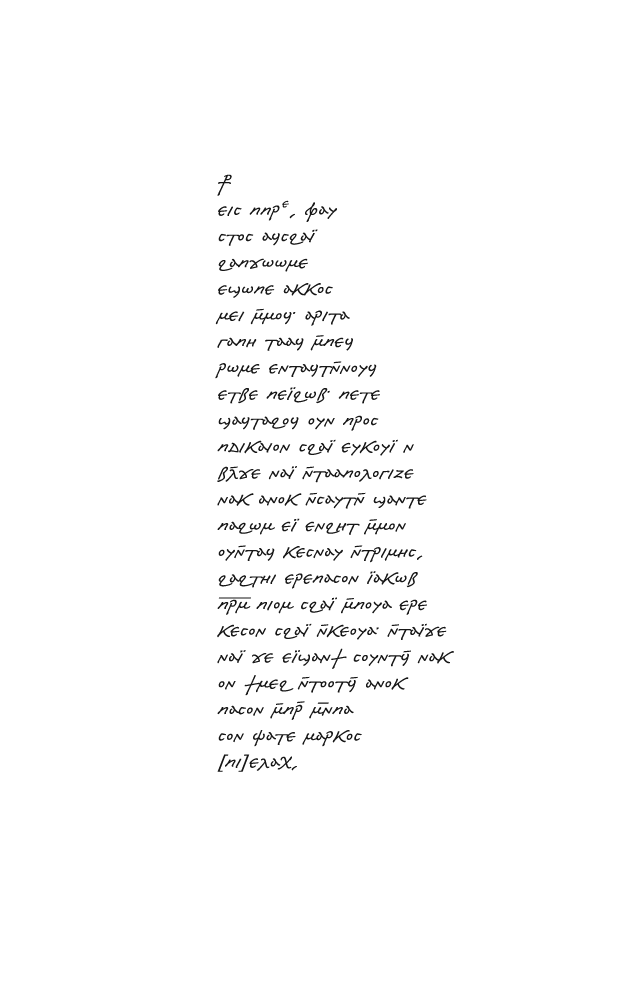 ⳨
ⲉⲓⲥ ⲡⲡⲣᵉ, ⲫⲁⲩ
ⲥⲧⲟⲥ ⲁϥⲥϩⲁⲓ̈
ϩⲁⲡϫⲱⲱⲙⲉ
ⲉϣⲱⲡⲉ ⲁⲕⲕⲟⲥ
ⲙⲉⲓ ⲙ̄ⲙⲟϥ· ⲁⲣⲓⲧⲁ
ⲅⲁⲡⲏ ⲧⲁⲁϥ ⲙ̄ⲡⲉϥ
ⲣⲱⲙⲉ ⲉⲛⲧⲁϥⲧⲛ̄ⲛⲟⲩϥ
ⲉⲧⲃⲉ ⲡⲉⲓ̈ϩⲱⲃ· ⲡⲉⲧⲉ
ϣⲁϥⲧⲁϩⲟϥ ⲟⲩⲛ ⲡⲣⲟⲥ
ⲡⲇⲓⲕⲁⲓⲟⲛ ⲥϩⲁⲓ̈ ⲉⲩⲕⲟⲩⲓ̈ ⲛ
ⲃⲗ̄ϫⲉ ⲛⲁⲓ̈ ⲛ̄ⲧⲁⲁⲡⲟⲗⲟⲅⲓⲍⲉ
ⲛⲁⲕ ⲁⲛⲟⲕ ⲛ̄ⲥⲁⲩⲧⲛ̄ ϣⲁⲛⲧⲉ
ⲡⲁϩⲱⲙ ⲉⲓ̈ ⲉⲛϩⲏⲧ ⲙ̄ⲙⲟⲛ
ⲟⲩⲛ̄ⲧⲁϥ ⲕⲉⲥⲛⲁⲩ ⲛ̄ⲧⲣⲓⲙⲏⲥ,
ϩⲁϩⲧⲏⲓ ⲉⲣⲉⲡⲁⲥⲟⲛ ⲓ̈ⲁⲕⲱⲃ
ⲡ̅ⲣ̅ⲙ̅ ⲡⲓⲟⲙ ⲥϩⲁⲓ̈ ⲙ̄ⲡⲟⲩⲁ ⲉⲣⲉ
ⲕⲉⲥⲟⲛ ⲥϩⲁⲓ̈ ⲛ̄ⲕⲉⲟⲩⲁ· ⲛ̄ⲧⲁⲓ̈ϫⲉ
ⲛⲁⲓ̈ ϫⲉ ⲉⲓ̈ϣⲁⲛϯ ⲥⲟⲩⲛⲧϥ̄ ⲛⲁⲕ
ⲟⲛ ϯⲙⲉϩ ⲛ̄ⲧⲟⲟⲧϥ̄ ⲁⲛⲟⲕ
ⲡⲁⲥⲟⲛ ⲙ̄ⲡⲣ̄ ⲙ̅ⲛ̅ⲡⲁ
ⲥⲟⲛ ⲯⲁⲧⲉ ⲙⲁⲣⲕⲟⲥ
[ⲡⲓ]ⲉⲗⲁⲭ,